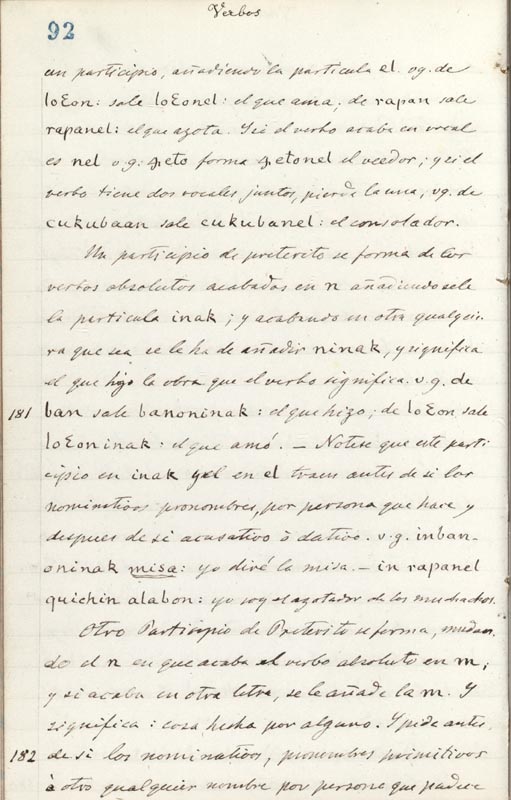 Verbos
92
un participio, añadiendo la particula el. vg. de
loƐon: sale loƐonel: el que ama, de rapan sale
rapanel: el que azota. Y si el verbo acaba en vocal
es nel v.g: ꜭeto forma ꜭetonel el veedor; y si el
verbo tiene dos vocales juntos, pierde la una, vg. de
cukubaan sale cukubanel: el consolador.
Un participio de preterito se forma de los
verbos absolutos acabados en n añadiendosele
la particula inak; y acabando en otra qualquie-
ra que sea se le ha de añadir ninak, y significa
el que hizo la obra que el verbo significa. v.g. de
181 ban sale banoninak: el que hizo; de loƐon, sale
loƐoninak: el que amó. – Notese que este parti-
cipio en inak y el en el traen antes de si los
nominativos pronombres, por persona que hace y
despues de si acusativo ò dativo. v.g. inban-
oninak misa: yo diré la misa. – in rapanel
quichin alabon: yo soy el azotador de los muchachos.
Otro Participio de Preterito se forma, mudan-
do el n en que acaba el verbo absoluto en m;
y si acaba en otra letra, se le añade la m. Y
significa: cosa hecha por alguno. Y pide antes
182 de si los nominativos, pronombres primitivos
à otro qualquier nombre por persona que padece